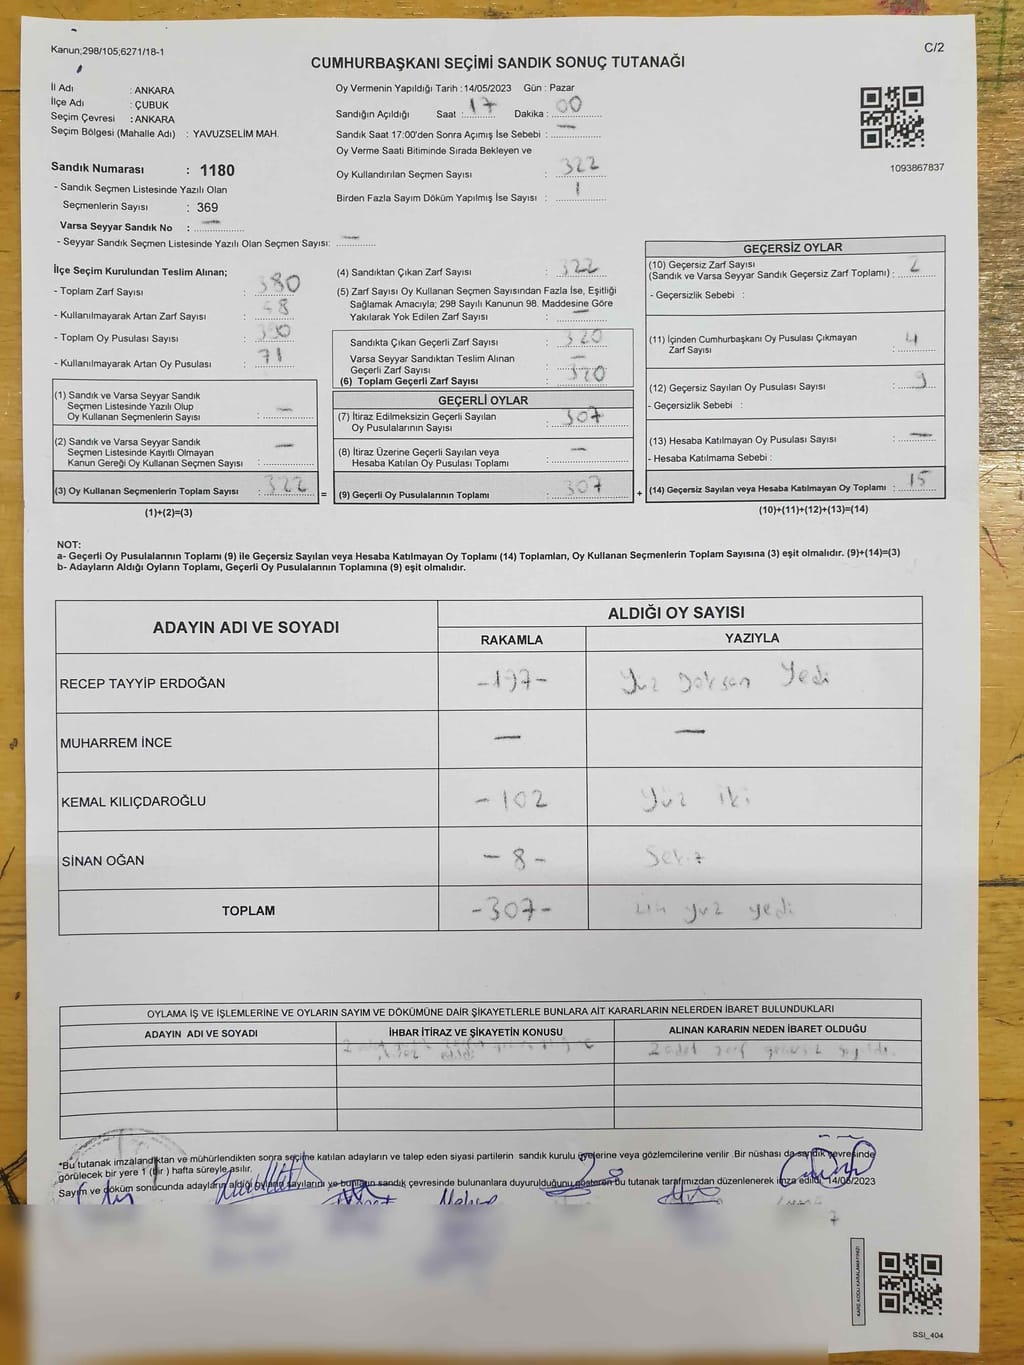 Kanun;298/105;6271/18-1
C/2
CUMHURBAŞKANI SEÇİMİ SANDIK SONUÇ TUTANAĞI
İl Adı : ANKARA
İlçe Adı : ÇUBUK
Seçim Çevresi : ANKARA
Seçim Bölgesi (Mahalle Adı) : YAVUZSELİM MAH.
Sandık Numarası : 1180
- Sandık Seçmen Listesinde Yazılı Olan
Seçmenlerin Sayısı : 369
Varsa Seyyar Sandık No : —
- Seyyar Sandık Seçmen Listesinde Yazılı Olan Seçmen Sayısı: —
Oy Vermenin Yapıldığı Tarih : 14/05/2023 Gün : Pazar
Sandığın Açıldığı Saat : 17 Dakika : 00
Sandık Saat 17:00'den Sonra Açımış İse Sebebi : —
Oy Verme Saati Bitiminde Sırada Bekleyen ve
Oy Kullandırılan Seçmen Sayısı : 322
Birden Fazla Sayım Döküm Yapılmış İse Sayısı : 1
1093867837
İlçe Seçim Kurulundan Teslim Alınan;
- Toplam Zarf Sayısı : 380
- Kullanılmayarak Artan Zarf Sayısı : 58
- Toplam Oy Pusulası Sayısı :
- Kullanılmayarak Artan Oy Pusulası : 71
(1) Sandık ve Varsa Seyyar Sandık
Seçmen Listesinde Yazılı Olup
Oy Kullanan Seçmenlerin Sayısı : —
(2) Sandık ve Varsa Seyyar Sandık
Seçmen Listesinde Kayıtlı Olmayan
Kanun Gereği Oy Kullanan Seçmen Sayısı : —
(3) Oy Kullanan Seçmenlerin Toplam Sayısı : 322
(1)+(2)=(3)
=
(4) Sandıktan Çıkan Zarf Sayısı : 322
(5) Zarf Sayısı Oy Kullanan Seçmen Sayısından Fazla İse, Eşitliği
Sağlamak Amacıyla; 298 Sayılı Kanunun 98. Maddesine Göre
Yakılarak Yok Edilen Zarf Sayısı : —
Sandıkta Çıkan Geçerli Zarf Sayısı : 320
Varsa Seyyar Sandıktan Teslim Alınan
Geçerli Zarf Sayısı : —
(6) Toplam Geçerli Zarf Sayısı : 320
GEÇERLİ OYLAR
(7) İtiraz Edilmeksizin Geçerli Sayılan
Oy Pusulalarının Sayısı : 307
(8) İtiraz Üzerine Geçerli Sayılan veya
Hesaba Katılan Oy Pusulası Toplamı : —
(9) Geçerli Oy Pusulalarının Toplamı : 307
+
GEÇERSİZ OYLAR
(10) Geçersiz Zarf Sayısı
(Sandık ve Varsa Seyyar Sandık Geçersiz Zarf Toplamı) : 2
- Geçersizlik Sebebi :
(11) İçinden Cumhurbaşkanı Oy Pusulası Çıkmayan
Zarf Sayısı : 4
(12) Geçersiz Sayılan Oy Pusulası Sayısı : 9
- Geçersizlik Sebebi :
(13) Hesaba Katılmayan Oy Pusulası Sayısı : —
- Hesaba Katılmama Sebebi :
(14) Geçersiz Sayılan veya Hesaba Katılmayan Oy Toplamı : 15
(10)+(11)+(12)+(13)=(14)
NOT:
a- Geçerli Oy Pusulalarının Toplamı (9) ile Geçersiz Sayılan veya Hesaba Katılmayan Oy Toplamı (14) Toplamları, Oy Kullanan Seçmenlerin Toplam Sayısına (3) eşit olmalıdır. (9)+(14)=(3)
b- Adayların Aldığı Oyların Toplamı, Geçerli Oy Pusulalarının Toplamına (9) eşit olmalıdır.
ADAYIN ADI VE SOYADI
ALDIĞI OY SAYISI
RAKAMLA YAZIYLA
RECEP TAYYİP ERDOĞAN -197- Yüz Doksan Yedi
MUHARREM İNCE — —
KEMAL KILIÇDAROĞLU -102 Yüz iki
SİNAN OĞAN -8- Sekiz
TOPLAM -307- yüz yedi
OYLAMA İŞ VE İŞLEMLERİNE VE OYLARIN SAYIM VE DÖKÜMÜNE DAİR ŞİKAYETLERLE BUNLARA AİT KARARLARIN NELERDEN İBARET BULUNDUKLARI
ADAYIN ADI VE SOYADI İHBAR İTİRAZ VE ŞİKAYETİN KONUSU ALINAN KARARIN NEDEN İBARET OLDUĞU
2 adet zarf
*Bu tutanak imzalandıktan ve mühürlendikten sonra seçime katılan adayların ve talep eden siyasi partilerin sandık kurulu üyelerine veya gözlemcilerine verilir .Bir nüshası da sandık çevresinde
görülecek bir yere 1 (bir ) hafta süreyle asılır.
Sayım ve döküm sonucunda adayların aldığı oyların sayılarını ve bunların sandık çevresinde bulunanlara duyurulduğunu gösteren bu tutanak tarafımızdan düzenlenerek imza edildi. 14/05/2023
KARE KODU KARALAMAYINIZ!
SSİ_404